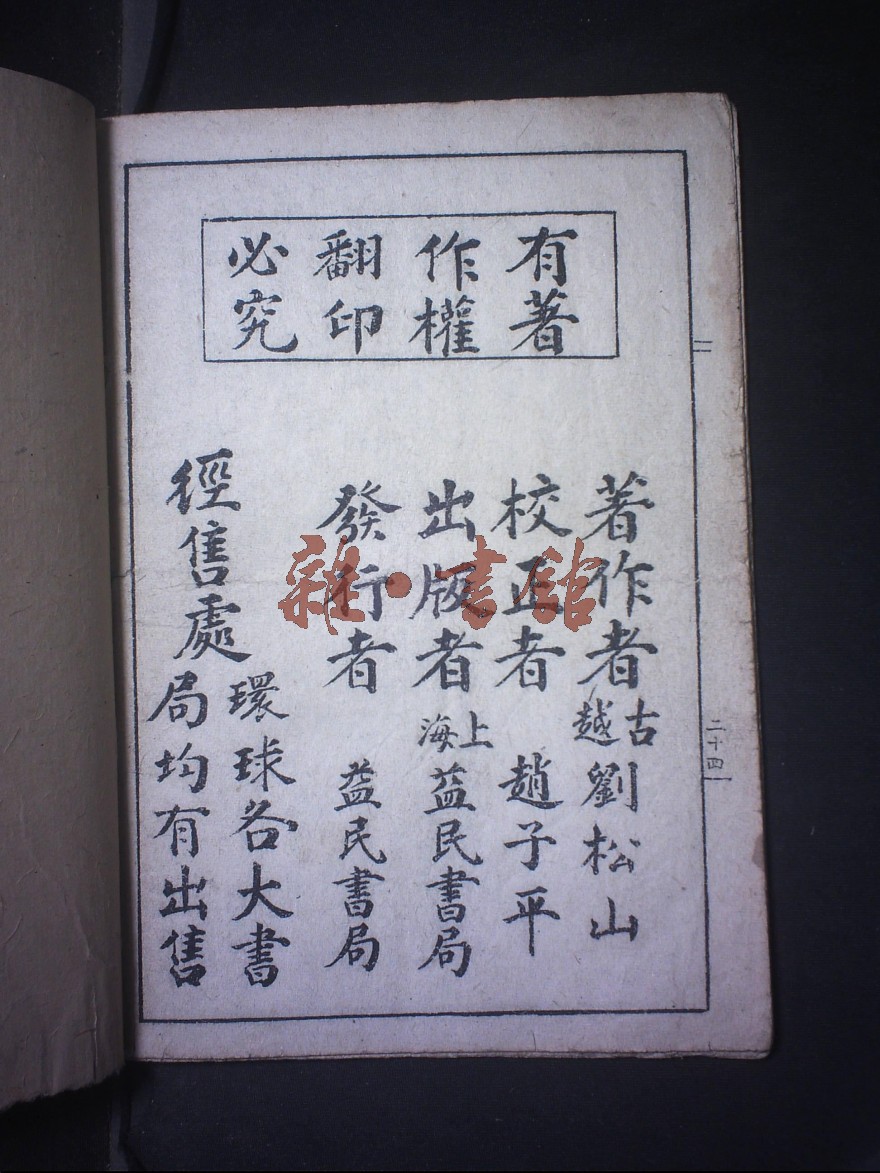 有著
作權
翻印
必究
著作者 古越 劉松山
校正者 趙子平
出版者 上海 益民書局
發行者 益民書局
徑售處 環球各大書
局均有出售
二十四
雜·書館